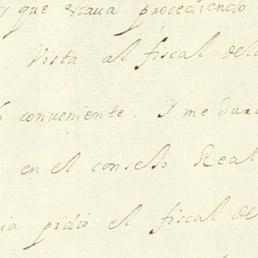 que estava procediendo
Vista al fiscal del
conveniente. Y me dar
en el consello Real
pidio el fiscal de